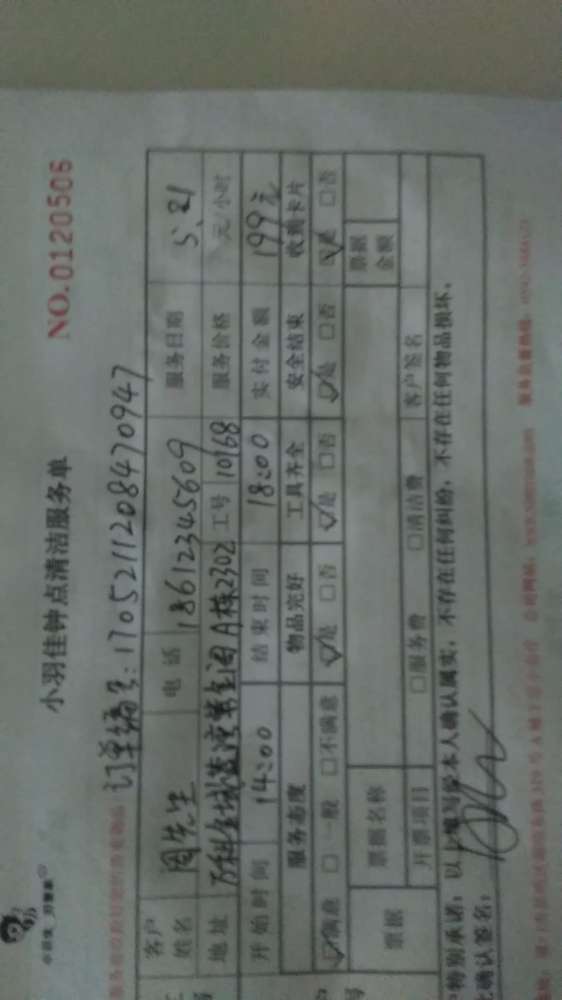 小羽佳钟点清洁服务单
NO.0120506
订单编号:170521120847 0947
客户姓名 周先生 电话 18612345609 服务日期 5.21
地址 A栋2302 工号 10168 服务价格 元/小时
开始时间 14:00 结束时间 18:00 实付金额 199元
服务态度 物品完好 工具齐全 安全结束 收到卡片
☑满意 □一般 □不满意 ☑是 □否 ☑是 □否 ☑是 □否 ☑是 □否
票据 票据名称 票据金额
开票项目 □服务费 □清洁费 客户签名
特别承诺:以上填写经本人确认属实,不存在任何纠纷,不存在任何物品损坏。
确认签名: